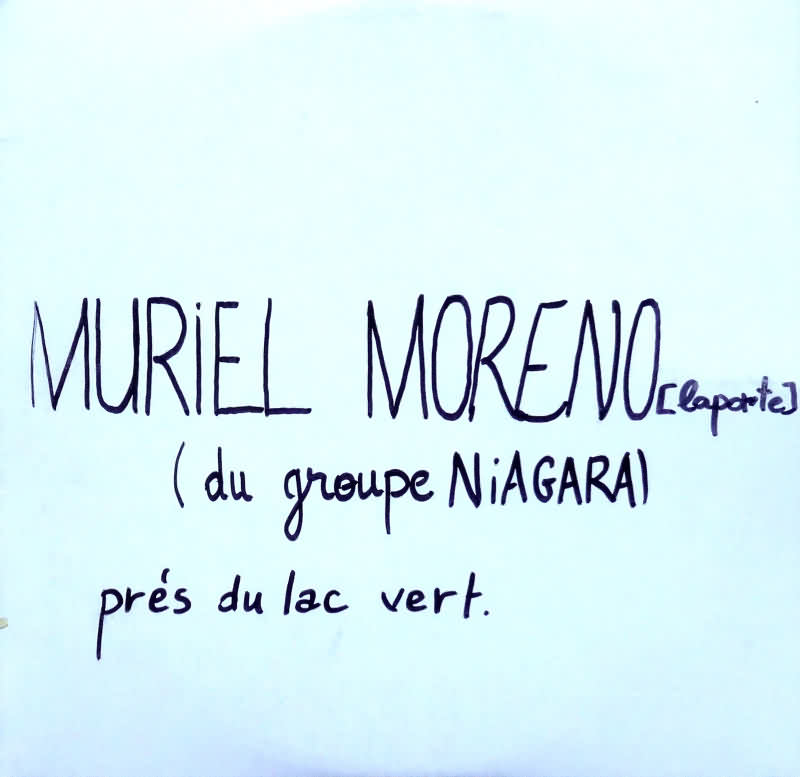 MURiEL MORENO [laporte]
( du groupe NiAGARA)
prés du lac vert.